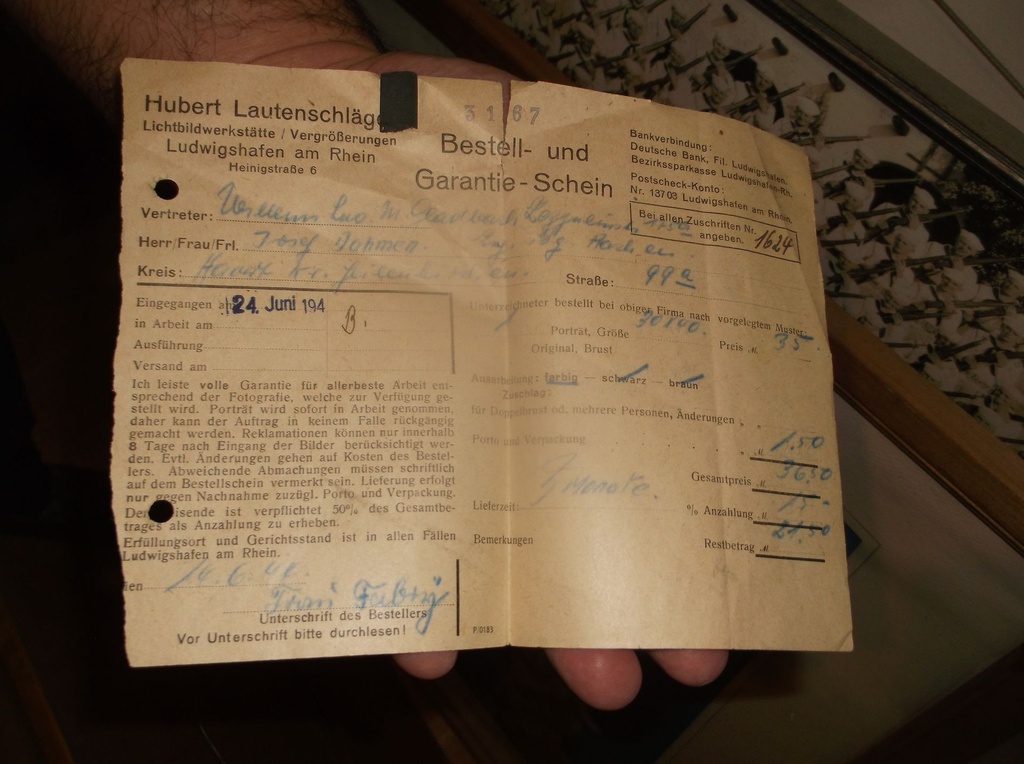 Hubert Lautenschläg
Lichtbildwerkstätte / Vergrößerungen
Ludwigshafen am Rhein
Heinigstraße 6
3167
Bestell- und
Garantie-Schein
Bankverbindung:
Deutsche Bank, Fil. Ludwigshafen,
Bezirkssparkasse Ludwigshafen-Rh.
Postscheck-Konto:
Nr. 13703 Ludwigshafen am Rhein.
Bei allen Zuschriften Nr.
angeben. 1624
Vertreter:
Herr/Frau/Frl. Josef Dahmen
Kreis:
Straße: 99a
Eingegangen a 24. Juni 194
in Arbeit am B.
Ausführung
Versand am
Ich leiste volle Garantie für allerbeste Arbeit ent-
sprechend der Fotografie, welche zur Verfügung ge-
stellt wird. Porträt wird sofort in Arbeit genommen,
daher kann der Auftrag in keinem Falle rückgängig
gemacht werden. Reklamationen können nur innerhalb
8 Tage nach Eingang der Bilder berücksichtigt wer-
den. Evtl. Änderungen gehen auf Kosten des Bestel-
lers. Abweichende Abmachungen müssen schriftlich
auf dem Bestellschein vermerkt sein. Lieferung erfolgt
nur gegen Nachnahme zuzügl. Porto und Verpackung.
De isende ist verpflichtet 50% des Gesamtbe-
trages als Anzahlung zu erheben.
Erfüllungsort und Gerichtsstand ist in allen Fällen
Ludwigshafen am Rhein.
den 14.6.44
Frau Fabry
Unterschrift des Bestellers
Vor Unterschrift bitte durchlesen!
Unterzeichneter bestellt bei obiger Firma nach vorgelegtem Muster:
Porträt, Größe Preis M. 35.
Original, Brust
Ausarbeitung: farbig — schwarz — braun
Zuschlag:
für Doppelbrust od. mehrere Personen, Änderungen
Porto und Verpackung M. 1.50
Gesamtpreis M. 36.50
Lieferzeit: Monate. % Anzahlung M. 15.-
Bemerkungen Restbetrag M. 21.50
P/0183